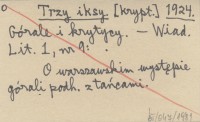 Trzy iksy [krypt.] 1924.
Górale i krytycy. — Wiad.
Lit. 1, nr 9:
O warszawskim występie
górali podh. z tańcami.